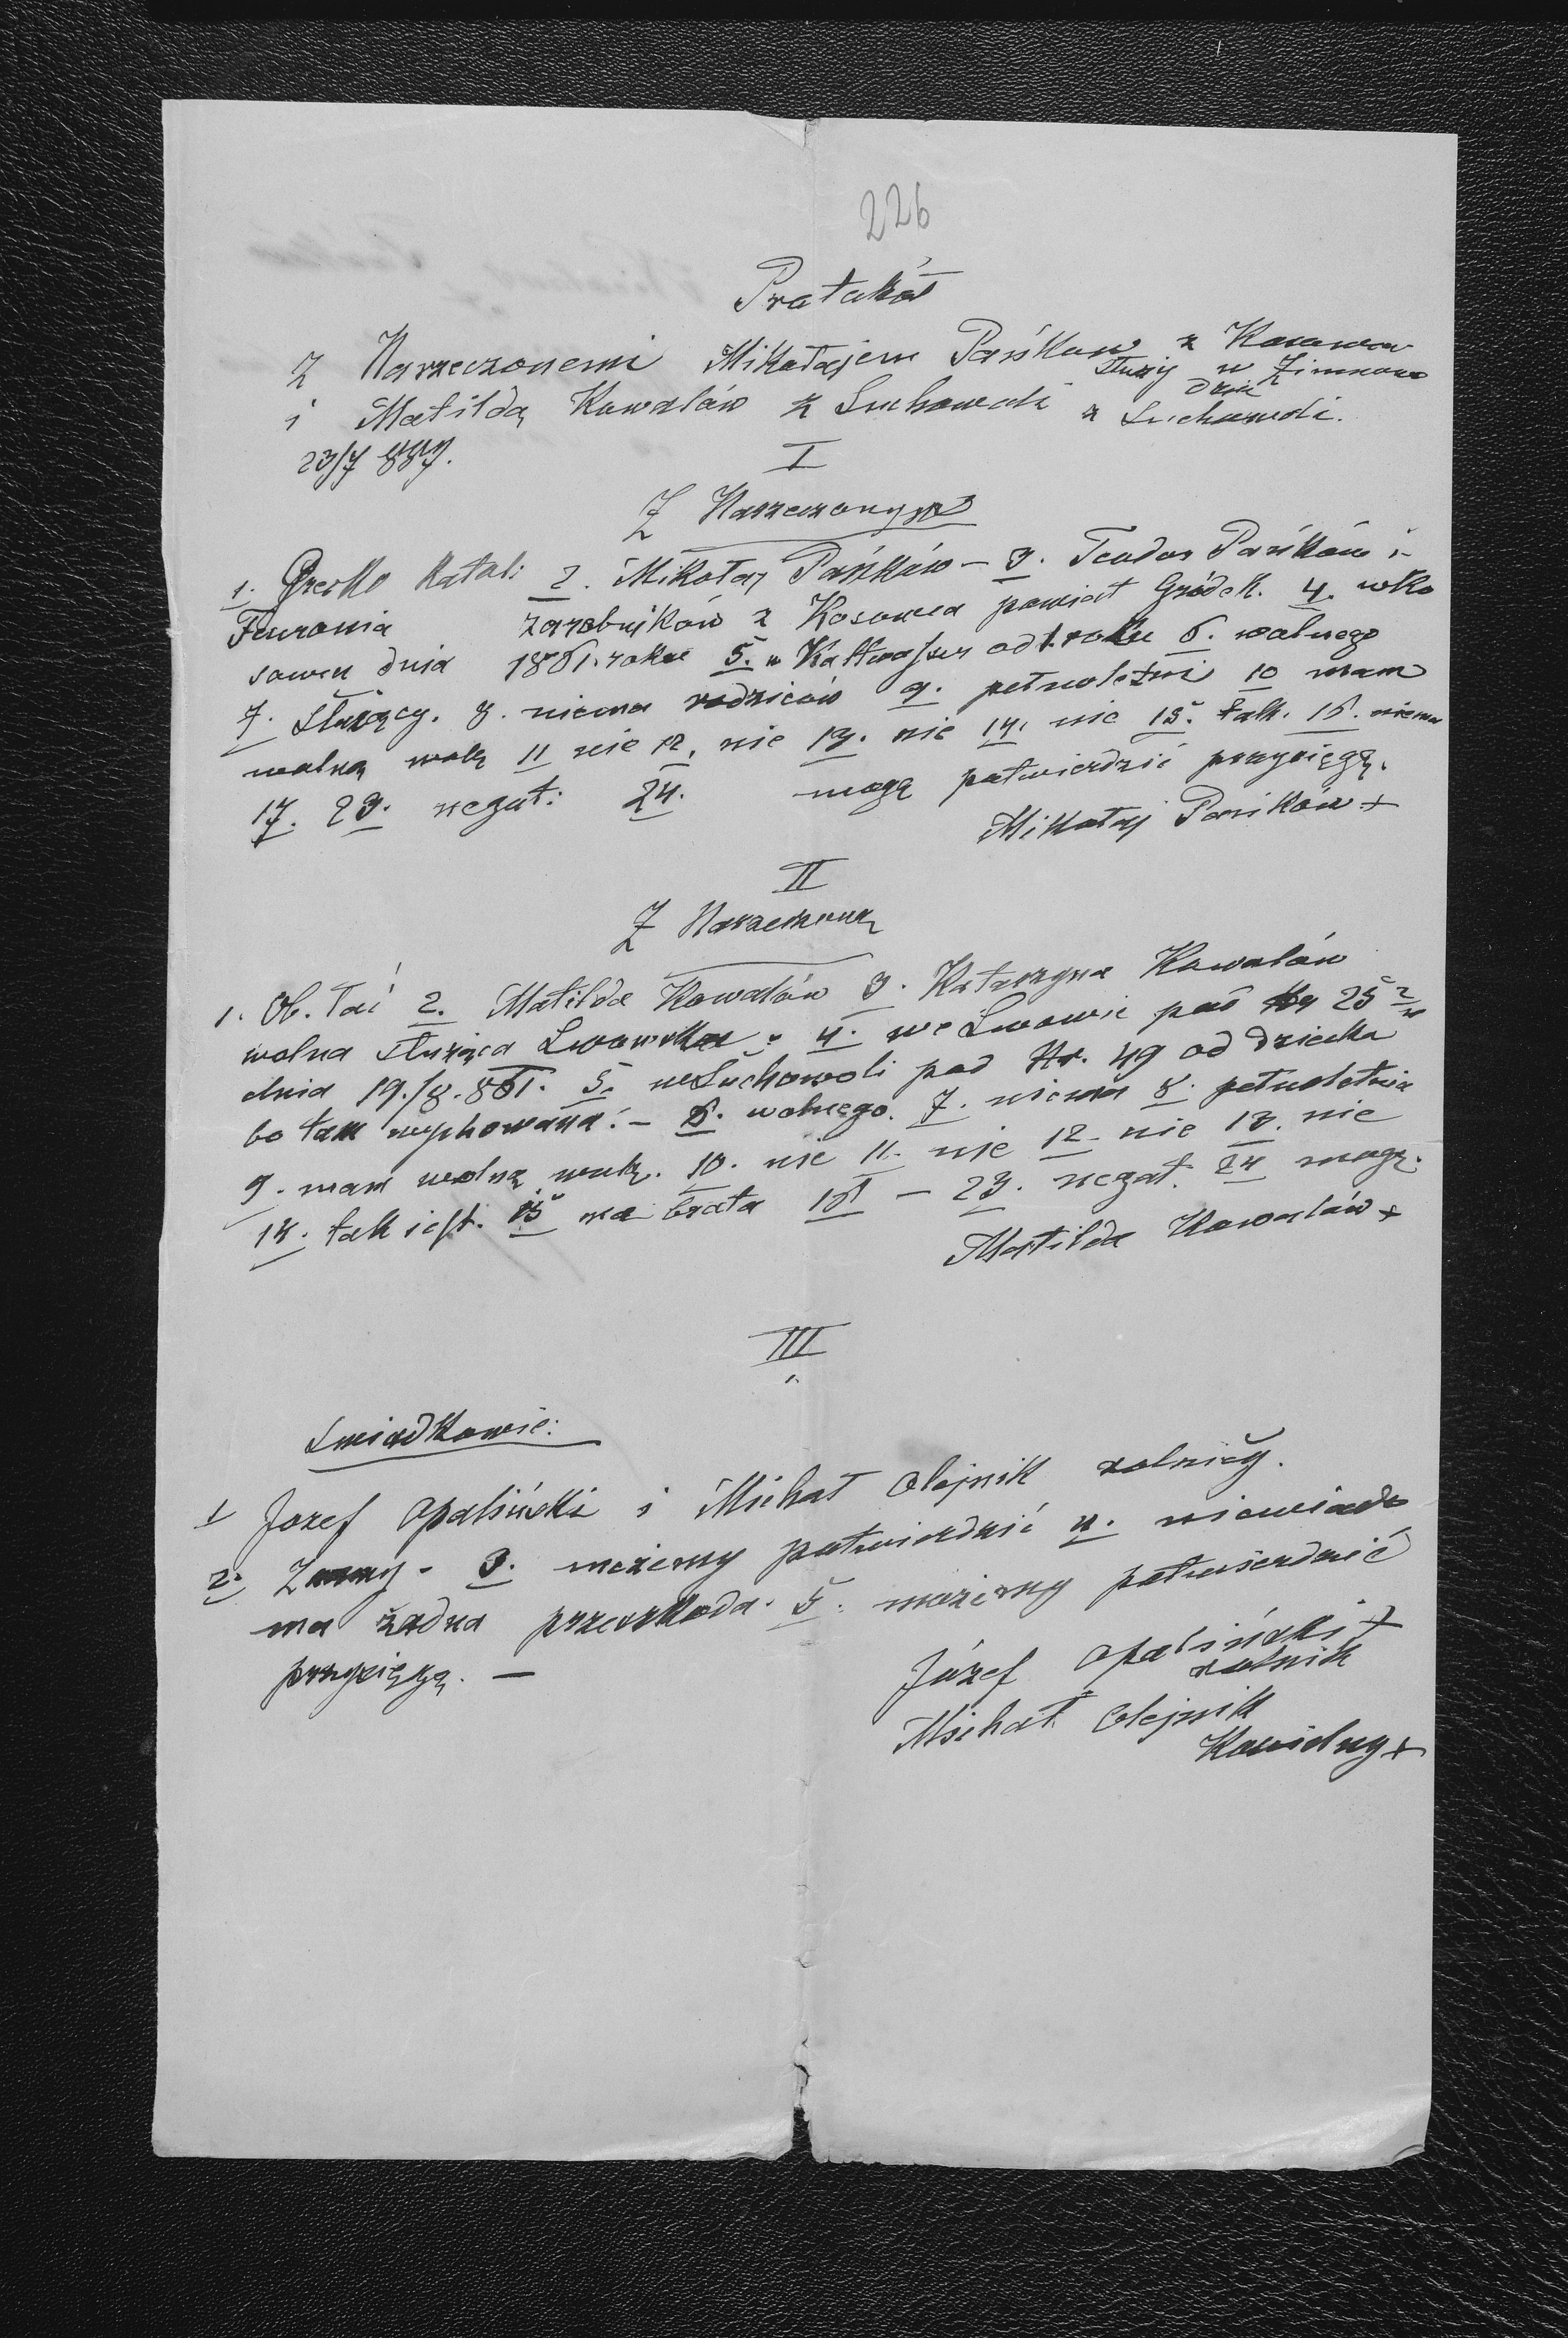 226
Protokół
z Narzeczonemi Mikołajem Pańków z Kosowca
służy w Zimnow
i Matildą Kowalów z Suchowoli z Suchowoli.
23/7 887.
I
Z Narzeczonym
1. Grecko katol: 2. Mikołaj Pańków – 3. Teodor Pańków i
Fewronia zarobników z Kosowca powiat Gródek. 4. w Ko
sowcu dnia 1861. roku 5. w Kaltwasser od 1. roku 6. wolnego
7. Służący. 8. niema rodziców 9. pełnoletni 10 mam
wolną wolę 11 nie 12. nie 13. nie 14. nie 15. tak. 16. niema
17. 23. negat: 24. mogę potwierdzić przysięgą.
Mikołaj Pańków +
II
Z Narzeczoną
1. Ob. łać 2. Matilda Kowalów 3. Katarzyna Kowalów
wolna służąca Lwowska; 4. we Lwowie pod Nr 25 2/4
dnia 19./8. 861. 5. w Suchowoli pod Nr. 49 od dziecka
bo tam wychowana. – 6. wolnego. 7. niema 8. pełnoletnia
9. mam wolną wolę. 10. nie 11. nie 12. nie 13. nie
14. tak jest. 15 ma brata 16 – 23. negat. 24 mogę.
Matilda Kowalów +
III
Swiadkowie:
1 Jozef Opaliński i Michał Olejnik rolnicy.
2. Znamy – 3. możemy potwierdzić 4. niewiado
ma żadna przeszkoda. 5. możemy potwierdzić
przysięgą. –
Józef Opaliński +
rolnik
Michał Olejnik